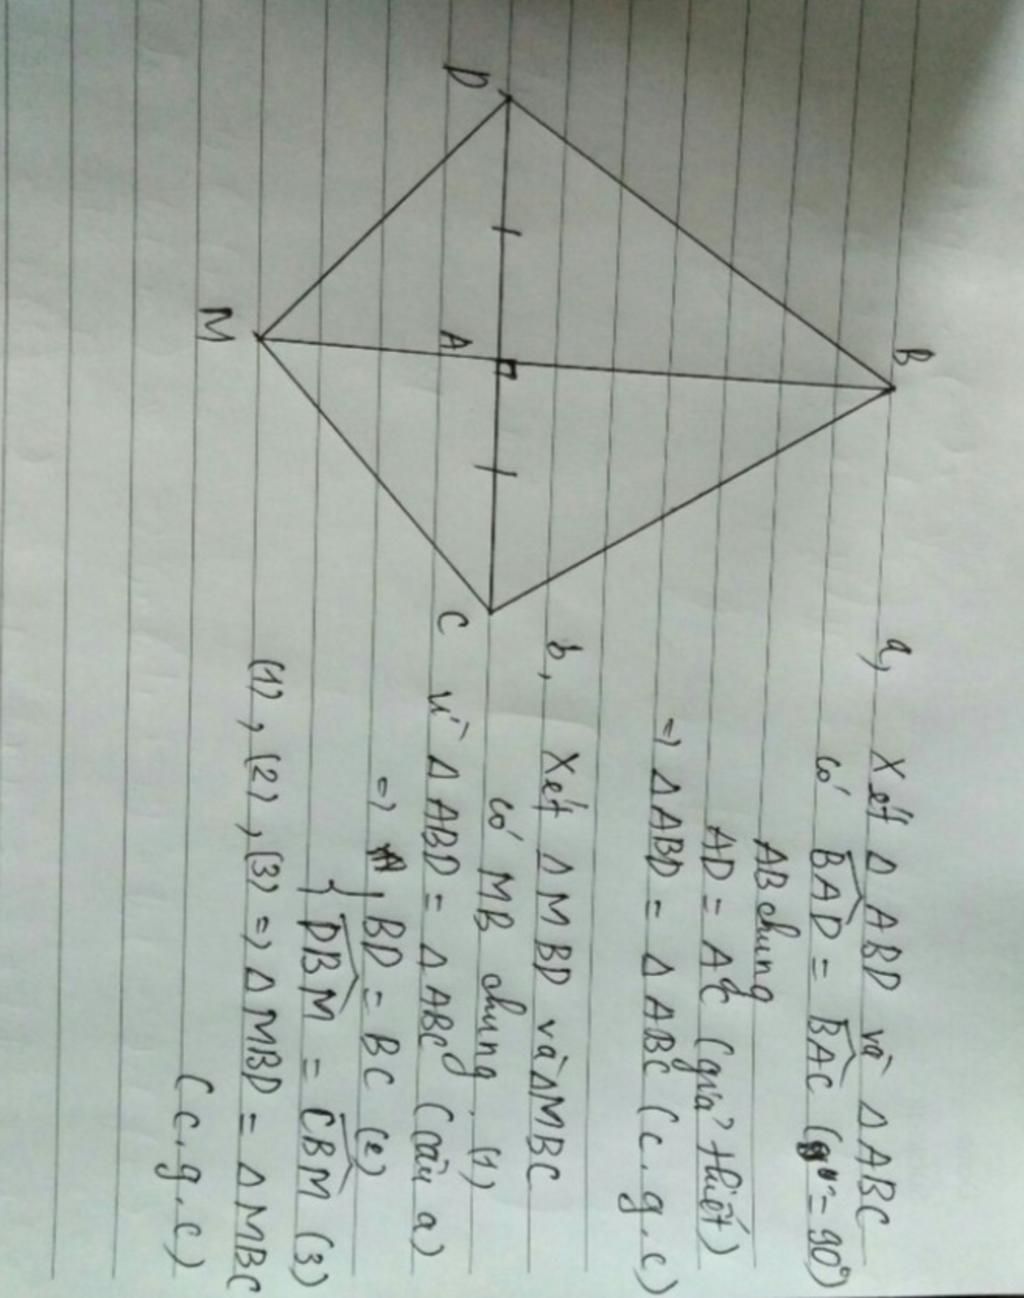 B
D
A
C
M
a, Xét Δ ABD và Δ ABC
có BAD = BAC ( = 90°)
AB chung
AD = AC (giả thiết)
=> Δ ABD = Δ ABC (c.g.c)
b, Xét Δ MBD và Δ MBC
có MB chung (1)
vì Δ ABD = Δ ABC (câu a)
=> { BD = BC (2)
DBM = CBM (3)
(1), (2), (3) => Δ MBD = Δ MBC
(c.g.c)